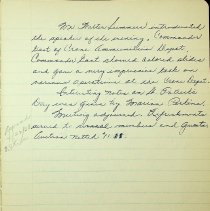 Mr. Walter Sumner introduced
the speaker of the evening, Commander
Gast of Crane Ammunition Depot.
Commander Gast showed colored slides
and gave a very impressive talk on
various operations at the Crane Depot.
Interesting notes on St. Patrick's
Day were given by Marian Perkins.
Meeting adjourned. Refreshments
served to members and guests.
Auction netted